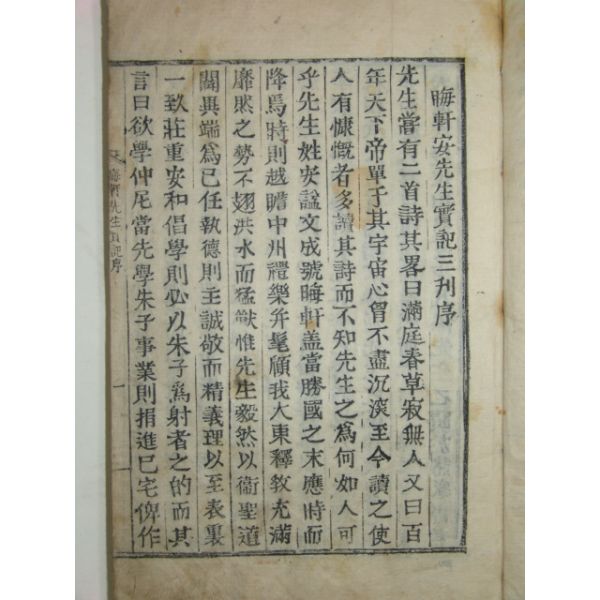 晦軒安先生實記三刋序
先生嘗有二首詩其畧曰滿庭春草寂無人又曰百
年天下帝單于其宇宙心胷不盡沉淚至今讀之使
人有慷慨者多讀其詩而不知先生之爲何如人可
乎先生姓安諡文成號晦軒盖當勝國之末應時而
降焉時則越瞻中州禮樂弁髦顧我大東釋敎充滿
靡然之勢不翅洪水而猛獸惟先生毅然以衛聖道
闢異端爲已任執德則主誠敬而精義理以至表裏
一致莊重安和倡學則必以朱子爲射者之的而其
言曰欲學仲尼當先學朱子事業則捐進已宅俾作
晦軒先生實記序
一